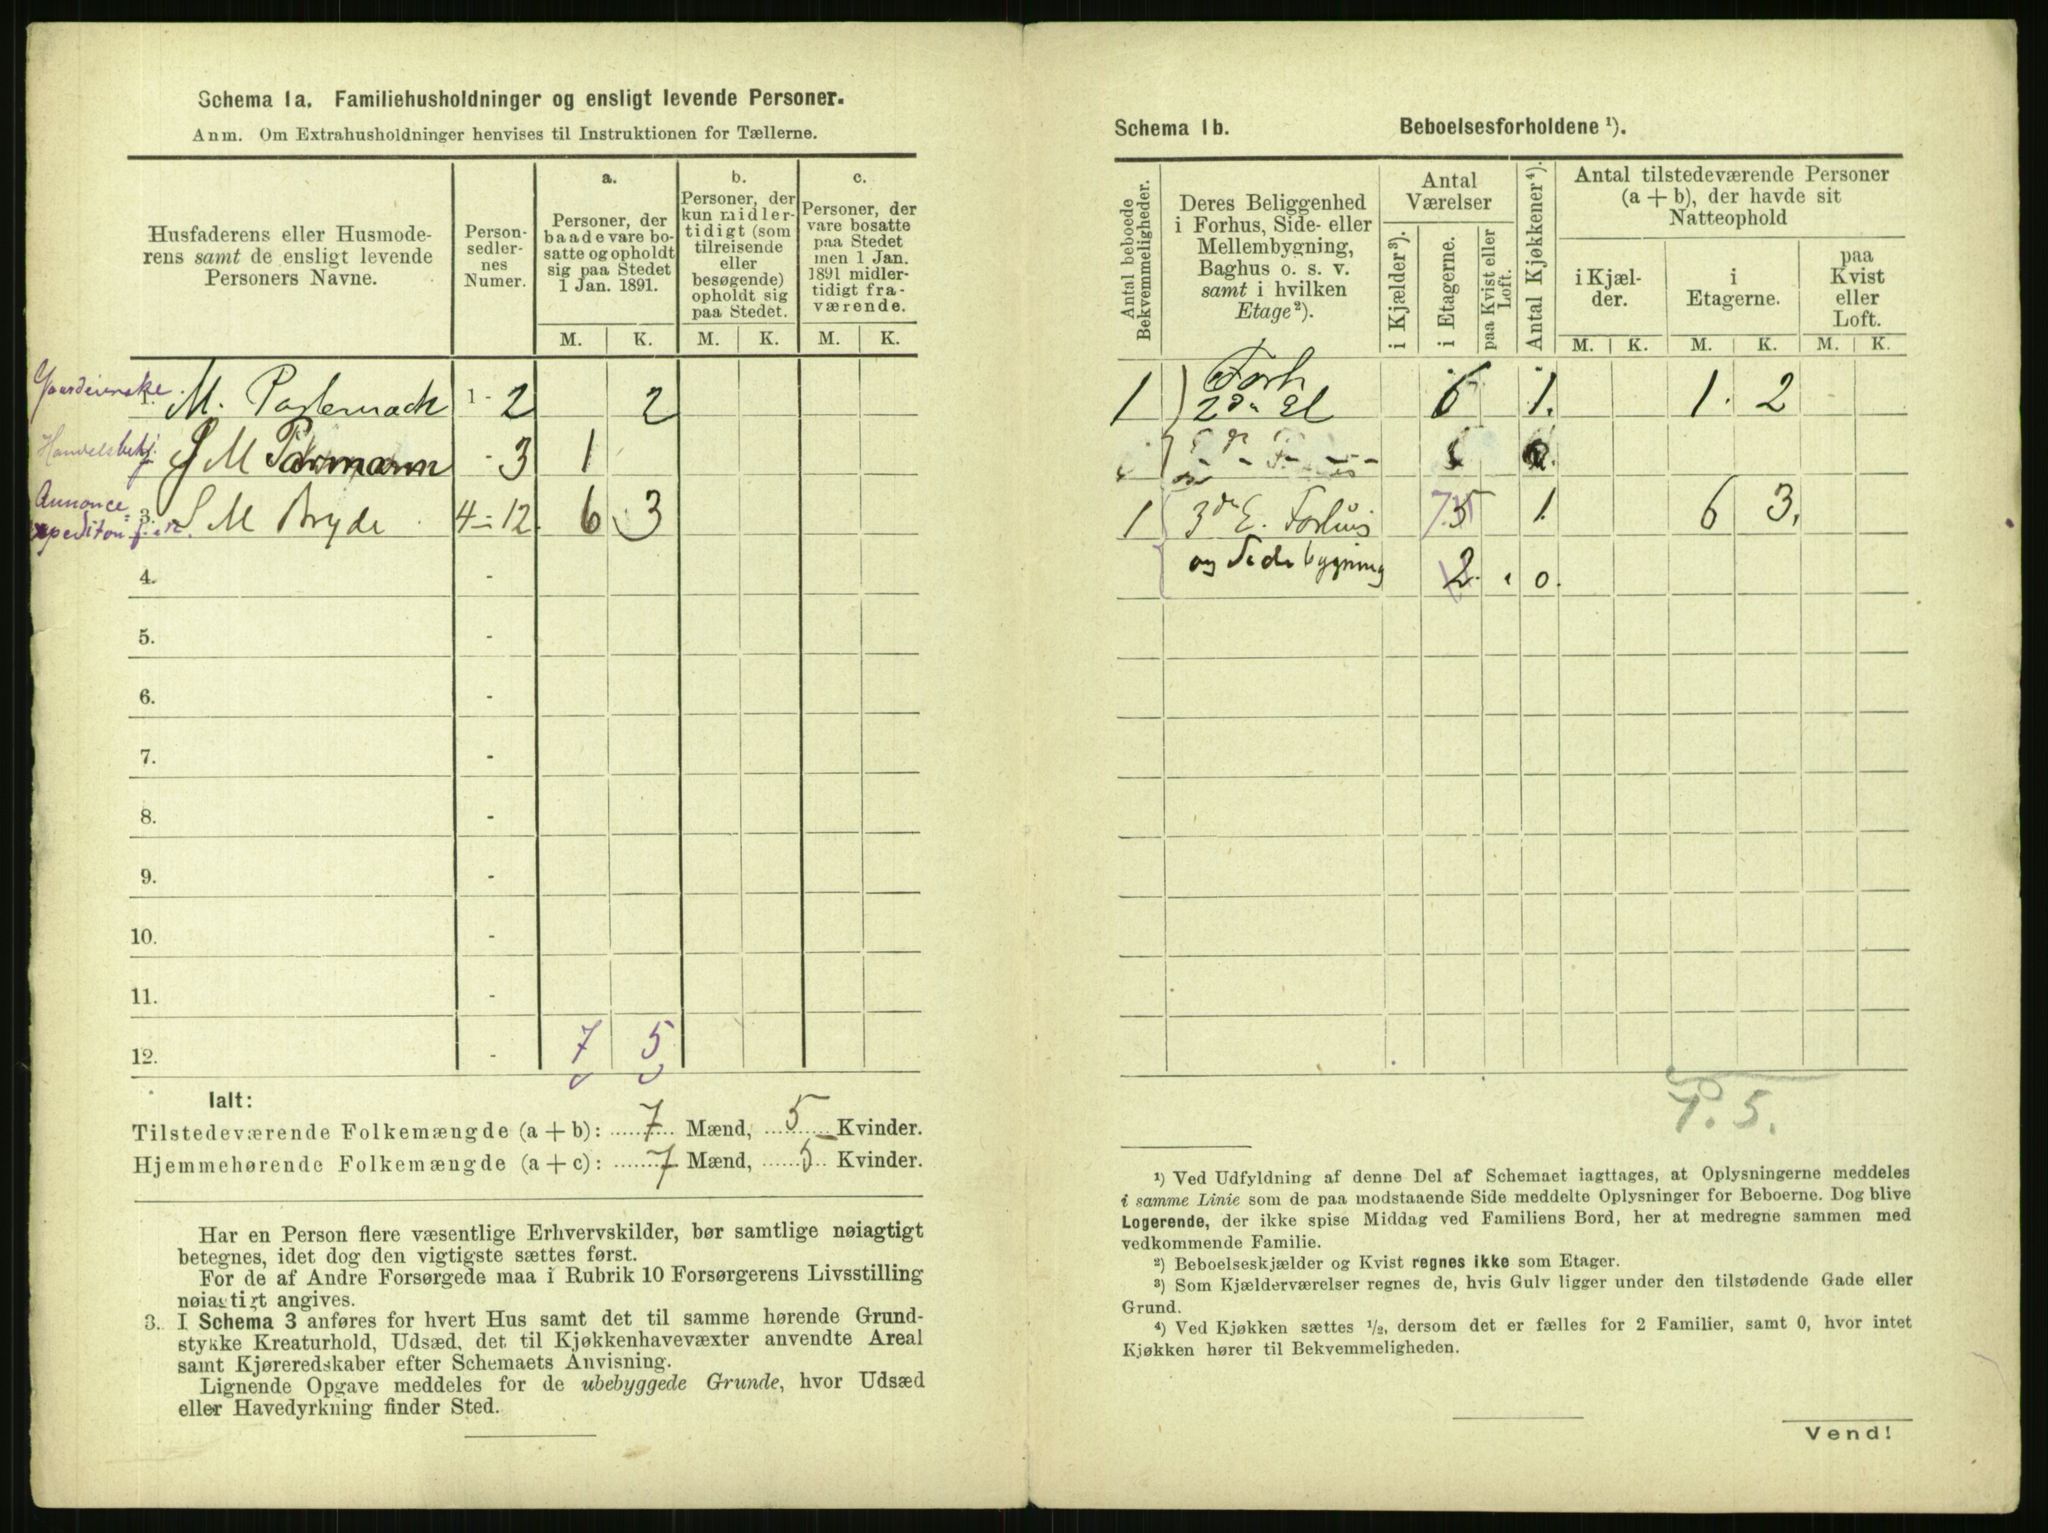 Schema 1a. Familiehusholdninger og ensligt levende Personer.
Anm. Om Extrahusholdninger henvises til Instruktionen for Tællerne.
Husfaderens eller Husmode-
rens samt de ensligt levende
Personers Navne.
Person-
sedler-
nes
Numer.
a.
Personer, der
baade vare bo-
satte og opholdt
sig paa Stedet
1 Jan. 1891.
b.
Personer, der
kun midler-
tidigt (som
tilreisende
eller
besøgende)
opholdt sig
paa Stedet.
c.
Personer, der
vare bosatte
paa Stedet
men 1 Jan.
1891 midler-
tidigt fra-
værende.
M. K. M. K. M. K.
1. M. Pasternack 1 - 2 2
Handelsbetj.
S M - 3 1
Annonce
3. S M Bryde 4 - 12 6 3
4. -
5. -
6. -
7. -
8. -
9. -
10. -
11. -
12. - 7 5
Ialt:
Tilstedeværende Folkemængde (a + b): 7 Mænd, 5 Kvinder.
Hjemmehørende Folkemængde (a + c): 7 Mænd, 5 Kvinder.
Har en Person flere væsentlige Erhvervskilder, bør samtlige nøiagtigt
betegnes, idet dog den vigtigste sættes først.
For de af Andre Forsørgede maa i Rubrik 10 Forsørgerens Livsstilling
nøiagtigt angives.
3. I Schema 3 anføres for hvert Hus samt det til samme hørende Grund-
stykke Kreaturhold, Udsæd, det til Kjøkkenhavevæxter anvendte Areal
samt Kjøreredskaber efter Schemaets Anvisning.
Lignende Opgave meddeles for de ubebyggede Grunde, hvor Udsæd
eller Havedyrkning finder Sted.
Schema 1b. Beboelsesforholdene ¹).
Antal beboede
Bekvemmeligheder.
Deres Beliggenhed
i Forhus, Side- eller
Mellembygning,
Baghus o. s. v.
samt i hvilken
Etage ²).
Antal
Værelser
i Kjælder ³).
i Etagerne.
paa Kvist eller
Loft.
Antal Kjøkkener ⁴).
Antal tilstedeværende Personer
(a + b), der havde sit
Natteophold
i Kjæl-
der.
i
Etagerne.
paa
Kvist
eller
Loft.
M. K. M. K. M. K.
1 Forh 6 1. 1. 2
2den Et
1 3de E. Forhus 7 5 1 6 3.
og Sidebygning 2. 0.
7. 5.
¹) Ved Udfyldning af denne Del af Schemaet iagttages, at Oplysningerne meddeles
i samme Linie som de paa modstaaende Side meddelte Oplysninger for Beboerne. Dog blive
Logerende, der ikke spise Middag ved Familiens Bord, her at medregne sammen med
vedkommende Familie.
²) Beboelseskjælder og Kvist regnes ikke som Etager.
³) Som Kjælderværelser regnes de, hvis Gulv ligger under den tilstødende Gade eller
Grund.
⁴) Ved Kjøkken sættes ½, dersom det er fælles for 2 Familier, samt 0, hvor intet
Kjøkken hører til Bekvemmeligheden.
Vend!